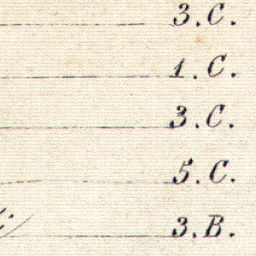 3. C.
1. C.
3. C.
5. C.
3. B.